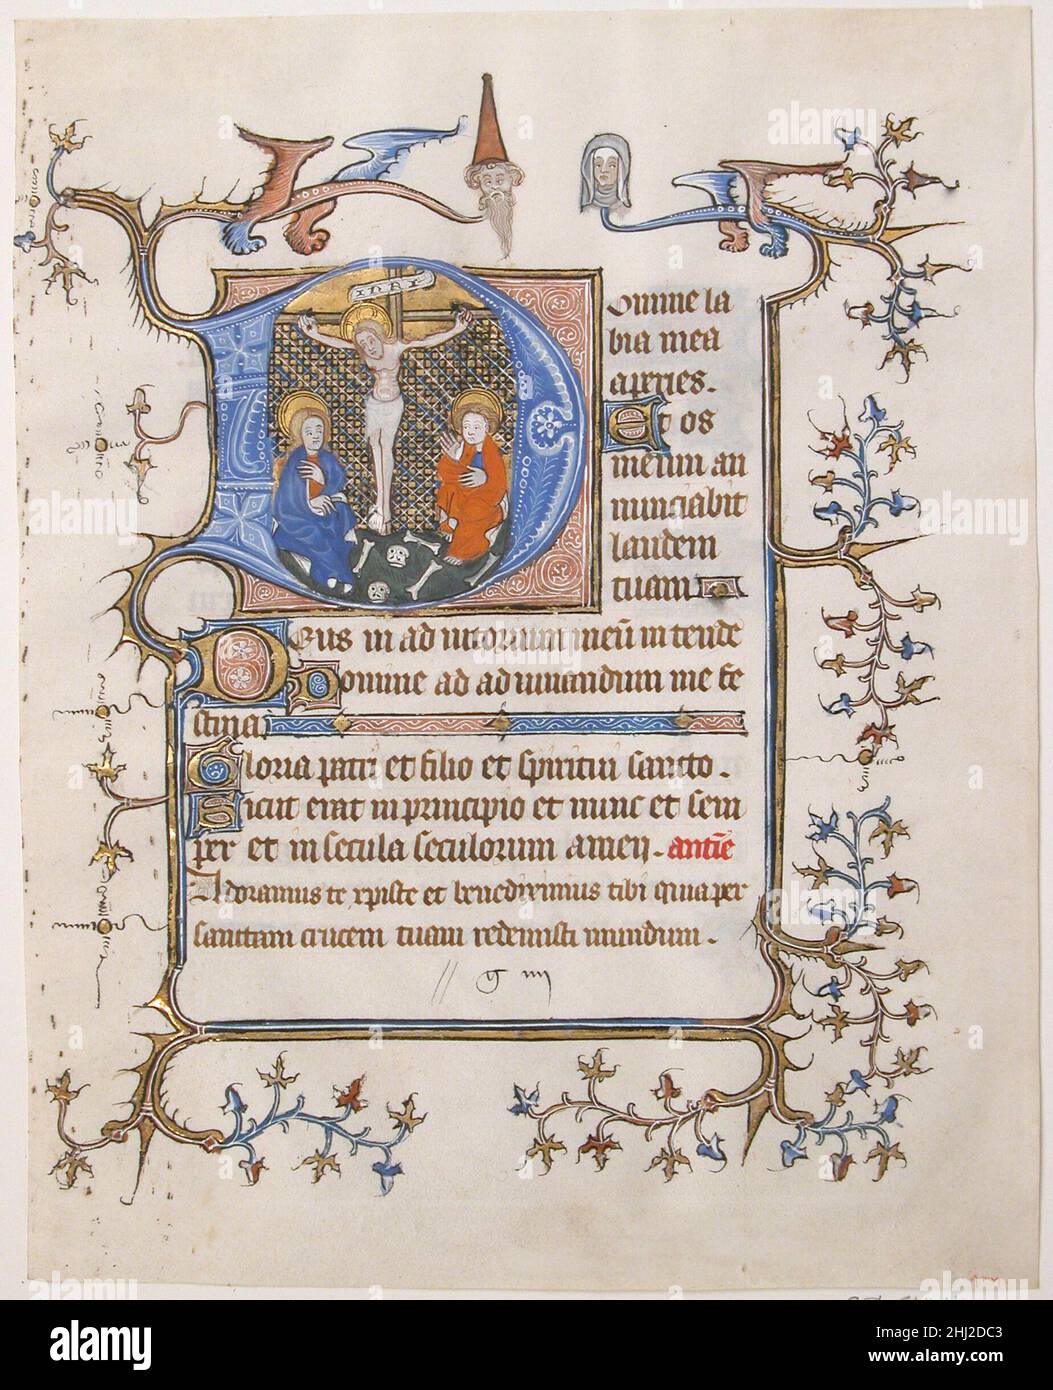 INRI
Domine la
bia mea
aperies.
Et os
meum an
nunciabit
laudem
tuam
Deus in adiutorium meū intende
Domine ad adiuuandum me fe
stina
Gloria patri et filio et spiritui sancto.
Sicut erat in principio et nunc et sem
per et in secula seculorum amen. antiē
Adoramus te xpiste et benedicimus tibi quia per
sanctam crucem tuam redemisti mundum.
alamy
Image ID: 2HJ2DC3
www.alamy.com